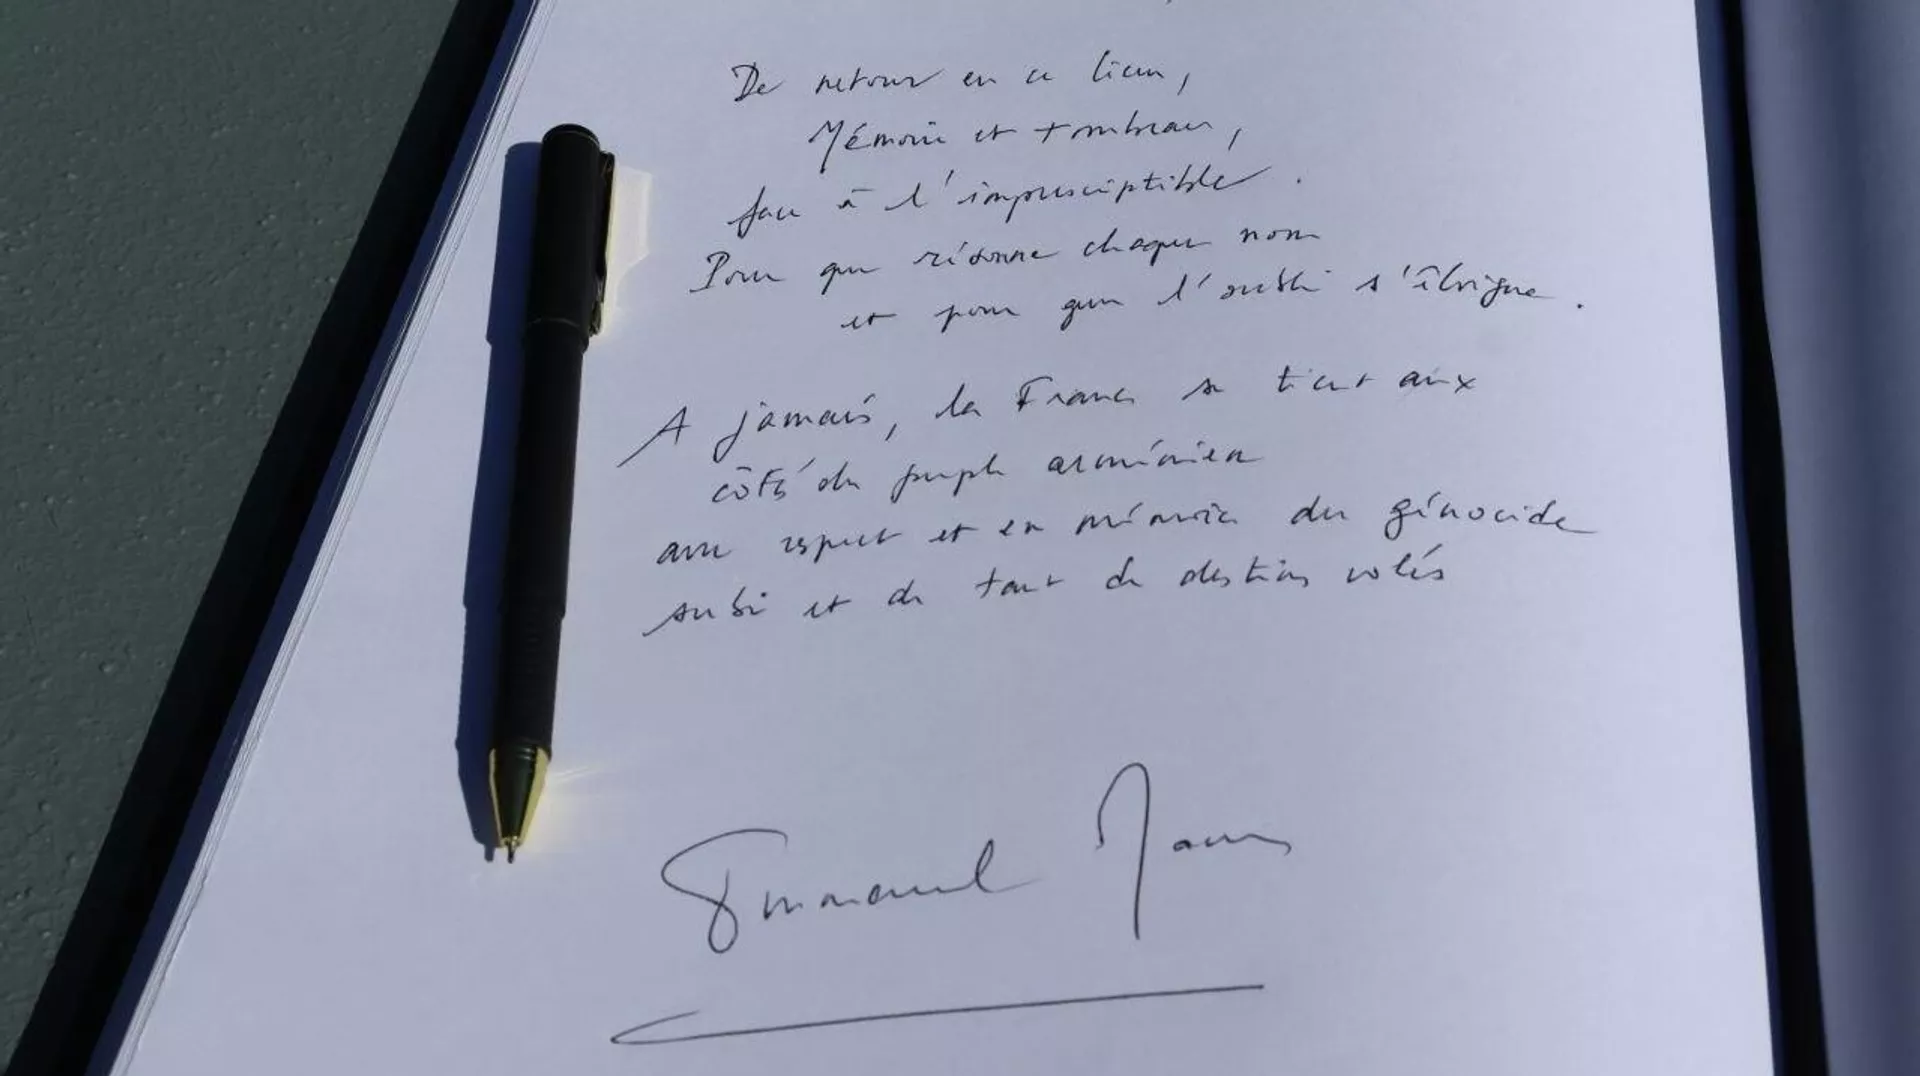 De retour en ce lieu,
Mémoire et tombeau,
face à l'imprescriptible.
Pour que résonne chaque nom
et pour que l'oubli s'éloigne.
A jamais, la France se tient aux
côtés du peuple arménien
avec respect et en mémoire du génocide
subi et de tant de destins volés
Emmanuel Macron